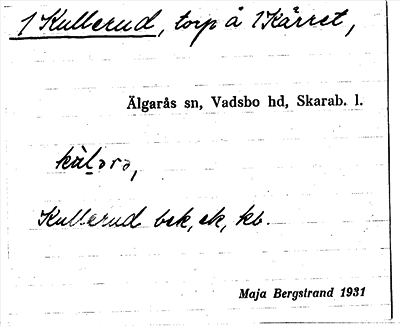 1 Kullerud, torp å 1 Kärret,
Älgarås sn, Vadsbo hd, Skarab. l.
Kullerud bsk, ek, kb.
Maja Bergstrand 1931